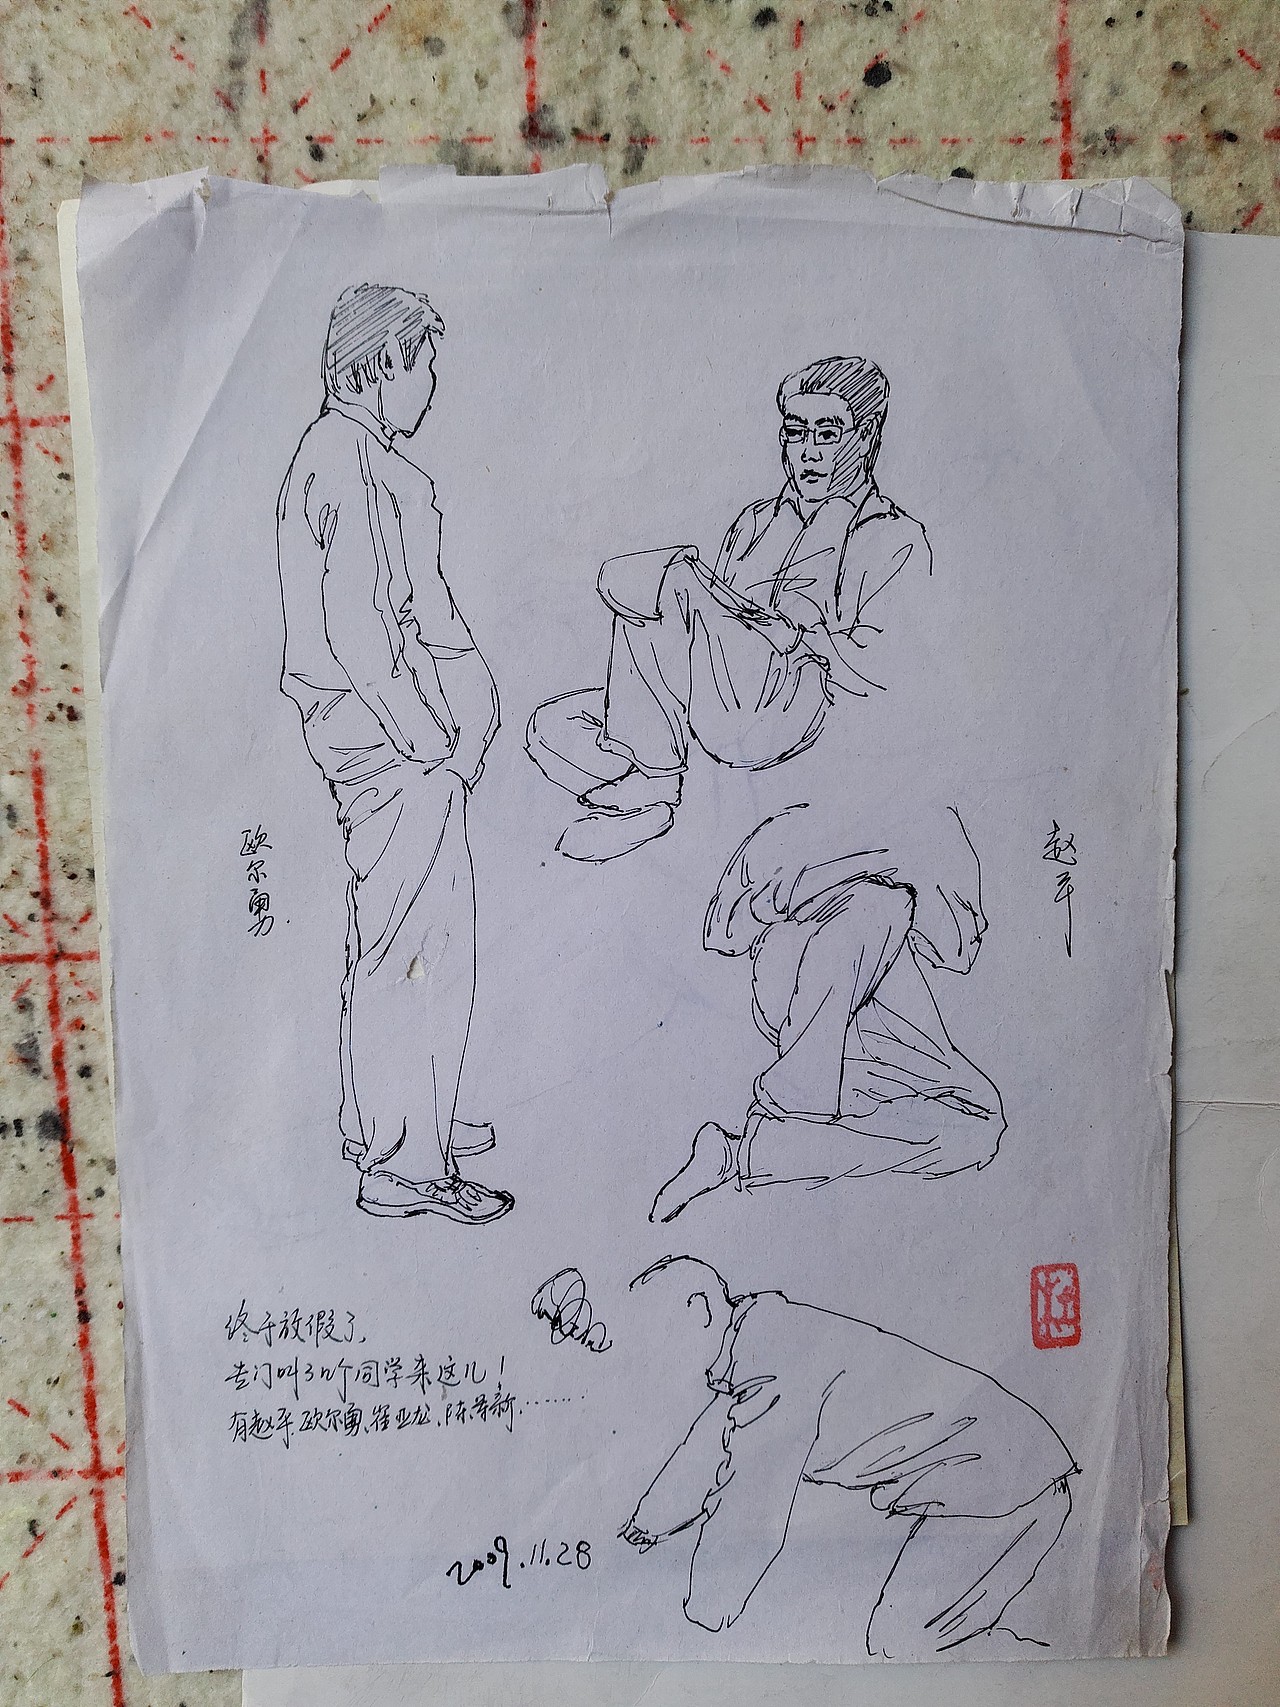 欧尔勇
赵军
终于放假了,
专门叫了几个同学来这儿!
有赵军.欧尔勇、崔亚龙、陈若新.……
2009.11.28